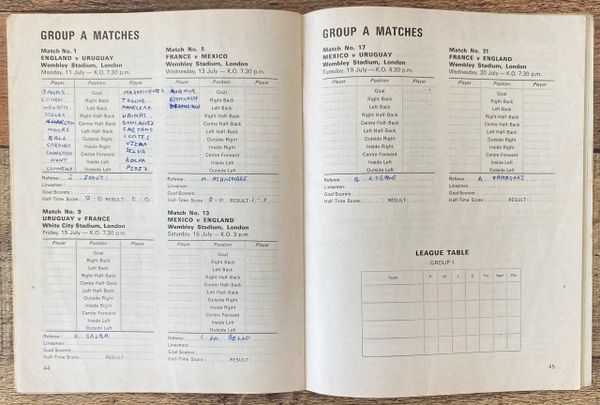 GROUP A MATCHES
Match No. 1
ENGLAND v URUGUAY
Wembley Stadium, London
Monday, 11 July — K.O. 7.30 p.m.
Player Position Player
BANKS Goal MAZURKIEWICZ
COHEN Right Back TROCHE
WILSON Left Back MANICERA
STILES Right Half-Back UBINAS
CHARLTON Centre Half-Back GONCALVEZ
MOORE Left Half-Back CAETANO
BALL Outside Right CORTES
GREAVES Inside Right VIERA
CHARLTON Centre Forward SILVA
HUNT Inside Left ROCHA
CONNELLY Outside Left PEREZ
Referee: I. ZSOLT
Linesmen:
Goal Scorers:
Half-Time Score: 0-0 RESULT: 0-0
Match No. 5
FRANCE v MEXICO
Wembley Stadium, London
Wednesday, 13 July — K.O. 7.30 p.m.
Player Position Player
AUBOUR Goal
Right Back
Left Back
Right Half-Back
Centre Half-Back
Left Half-Back
Outside Right
Inside Right
Centre Forward
Inside Left
Outside Left
Referee: M. ASHKENASI
Linesmen:
Goal Scorers:
Half-Time Score: 0-0 RESULT: 1-1
Match No. 9
URUGUAY v FRANCE
White City Stadium, London
Friday, 15 July — K.O. 7.30 p.m.
Player Position Player
Goal
Right Back
Left Back
Right Half-Back
Centre Half-Back
Left Half-Back
Outside Right
Inside Right
Centre Forward
Inside Left
Outside Left
Referee: K. GALBA
Linesmen:
Goal Scorers:
Half-Time Score: RESULT:
Match No. 13
MEXICO v ENGLAND
Wembley Stadium, London
Saturday, 16 July — K.O. 3 p.m.
Player Position Player
Goal
Right Back
Left Back
Right Half-Back
Centre Half-Back
Left Half-Back
Outside Right
Inside Right
Centre Forward
Inside Left
Outside Left
Referee: LO BELLO
Linesmen:
Goal Scorers:
Half-Time Score: RESULT:
44
GROUP A MATCHES
Match No. 17
MEXICO v URUGUAY
Wembley Stadium, London
Tuesday, 19 July — K.O. 4.30 p.m.
Player Position Player
Goal
Right Back
Left Back
Right Half-Back
Centre Half-Back
Left Half-Back
Outside Right
Inside Right
Centre Forward
Inside Left
Outside Left
Referee:
Linesmen:
Goal Scorers:
Half-Time Score: RESULT:
Match No. 21
FRANCE v ENGLAND
Wembley Stadium, London
Wednesday, 20 July — K.O. 7.30 p.m.
Player Position Player
Goal
Right Back
Left Back
Right Half-Back
Centre Half-Back
Left Half-Back
Outside Right
Inside Right
Centre Forward
Inside Left
Outside Left
Referee: A. YAMASAKI
Linesmen:
Goal Scorers:
Half-Time Score: RESULT:
LEAGUE TABLE
GROUP 1
Team P W L D For Agst Pts
45